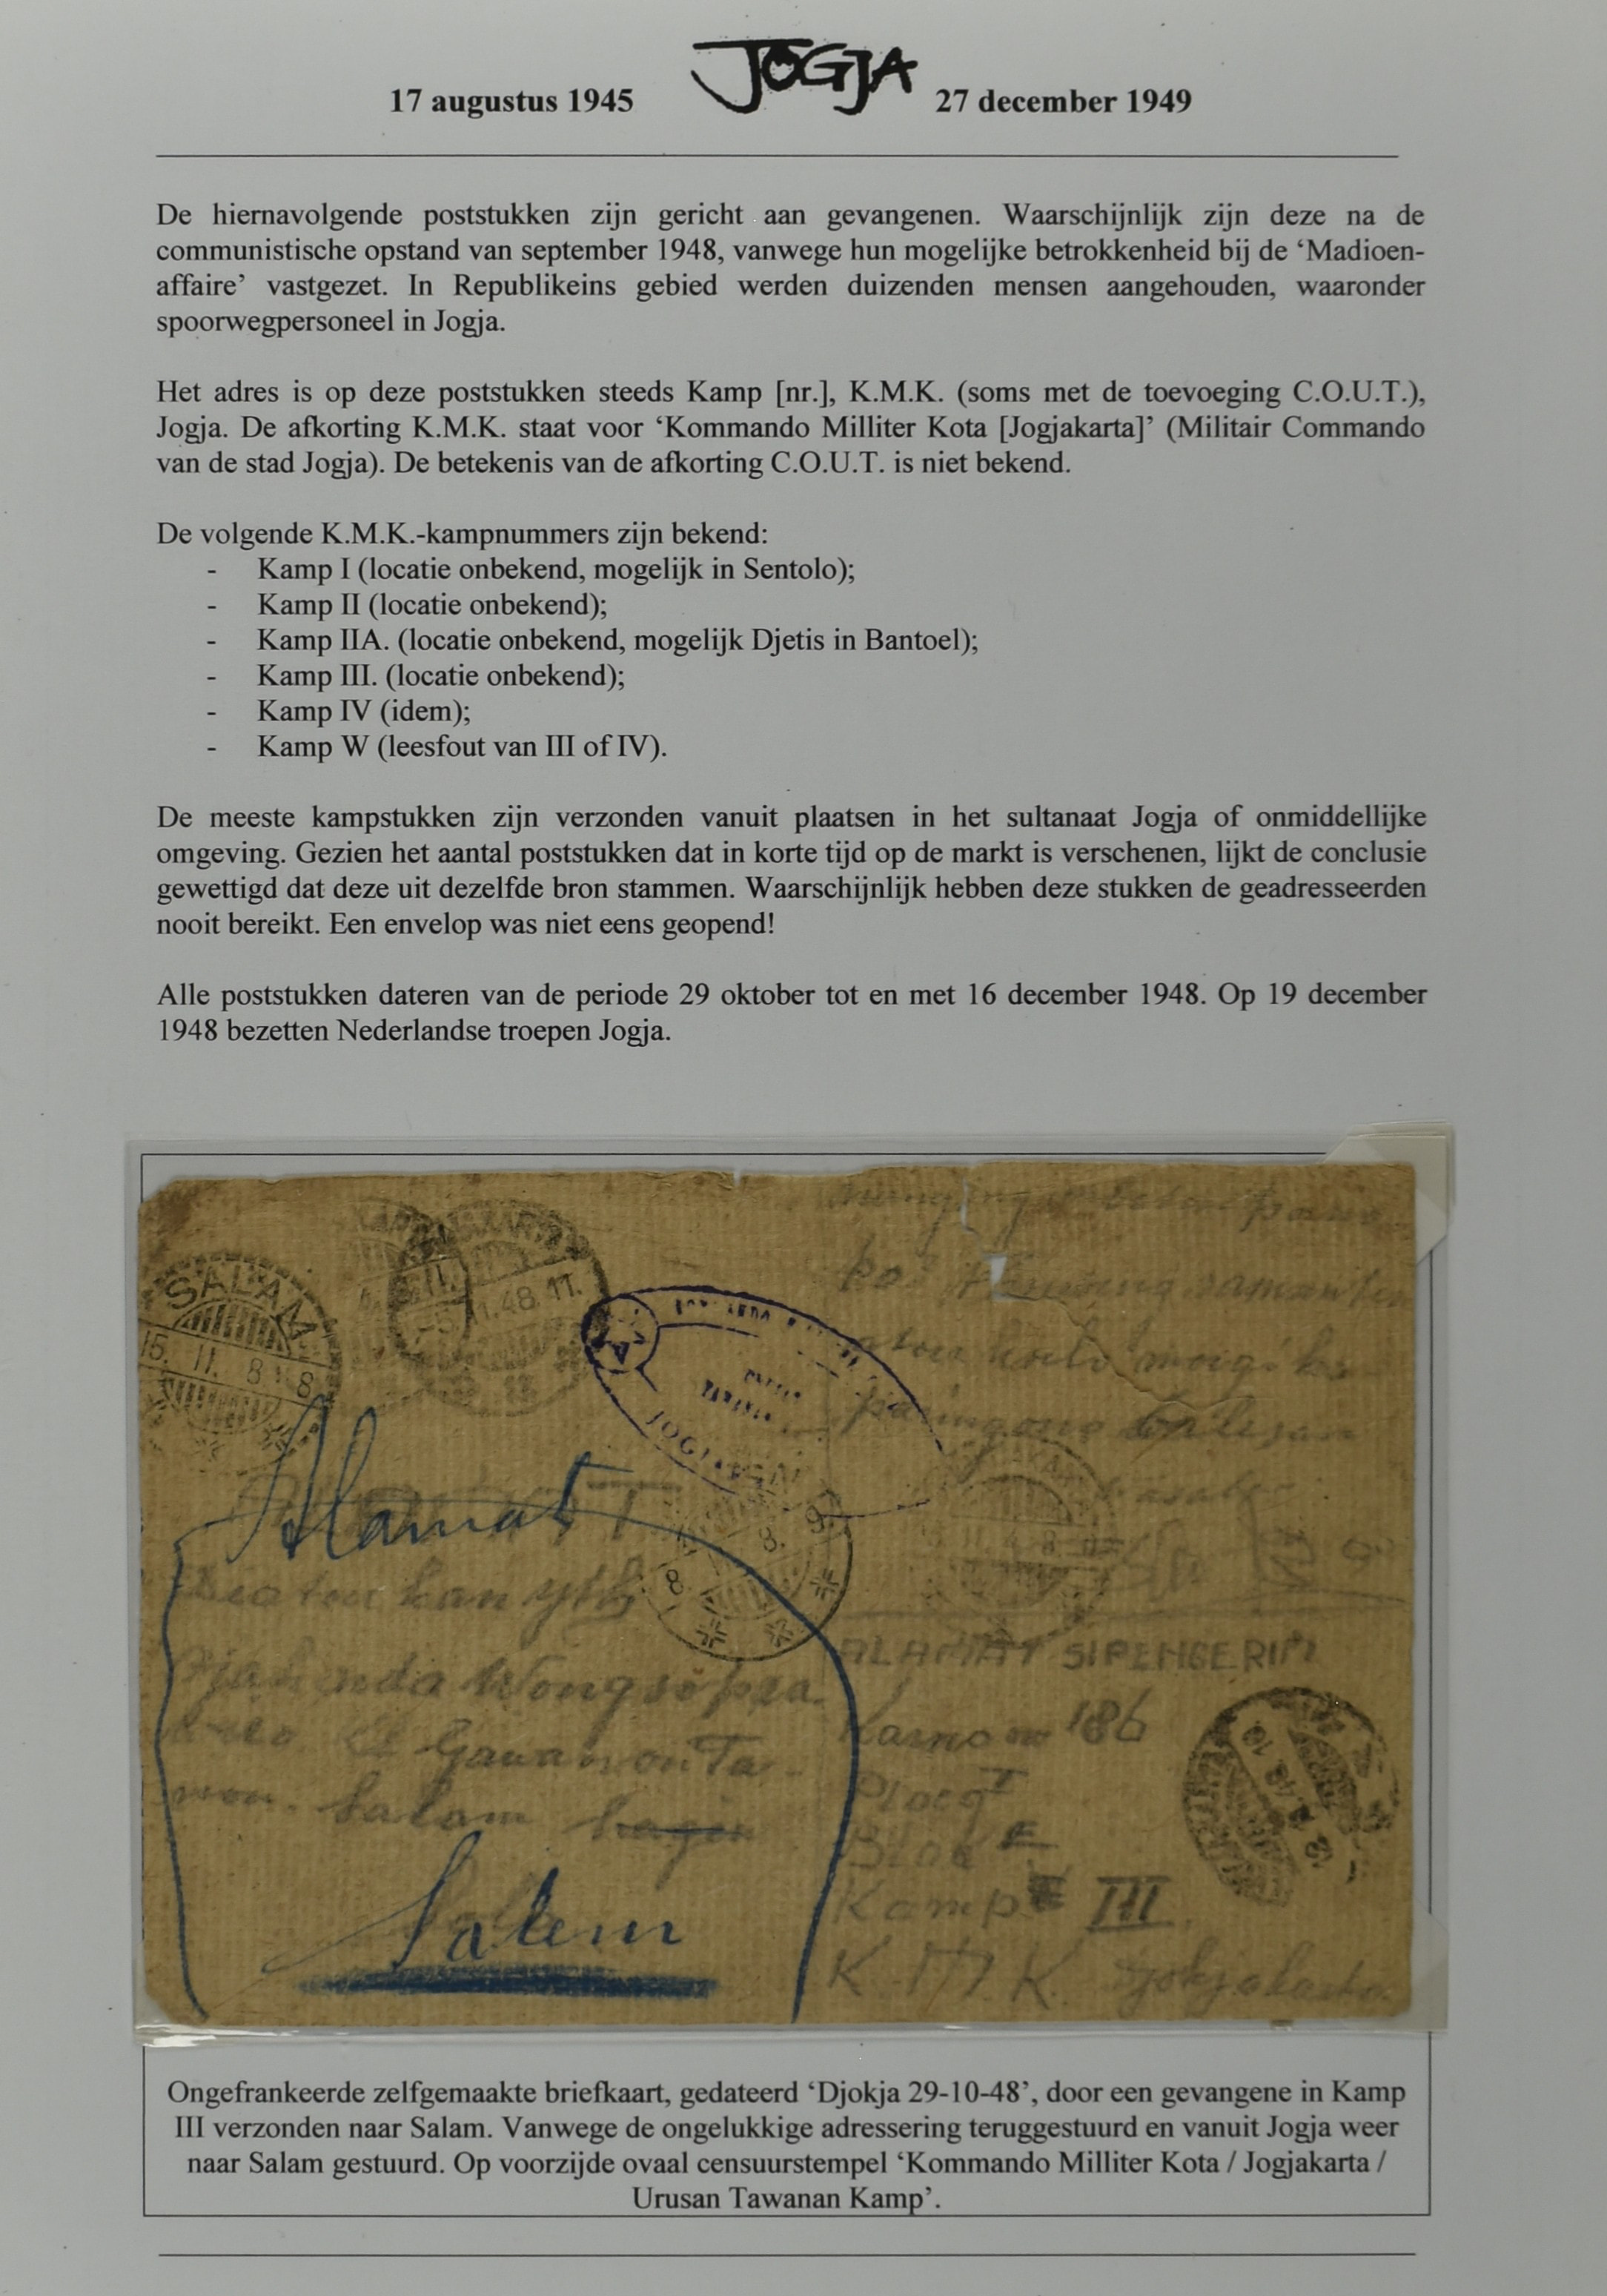 JOGJA
17 augustus 1945 27 december 1949
De hiernavolgende poststukken zijn gericht aan gevangenen. Waarschijnlijk zijn deze na de
communistische opstand van september 1948, vanwege hun mogelijke betrokkenheid bij de ‘Madioen-
affaire’ vastgezet. In Republikeins gebied werden duizenden mensen aangehouden, waaronder
spoorwegpersoneel in Jogja.
Het adres is op deze poststukken steeds Kamp [nr.], K.M.K. (soms met de toevoeging C.O.U.T.),
Jogja. De afkorting K.M.K. staat voor ‘Kommando Milliter Kota [Jogjakarta]’ (Militair Commando
van de stad Jogja). De betekenis van de afkorting C.O.U.T. is niet bekend.
De volgende K.M.K.-kampnummers zijn bekend:
- Kamp I (locatie onbekend, mogelijk in Sentolo);
- Kamp II (locatie onbekend);
- Kamp IIA. (locatie onbekend, mogelijk Djetis in Bantoel);
- Kamp III. (locatie onbekend);
- Kamp IV (idem);
- Kamp W (leesfout van III of IV).
De meeste kampstukken zijn verzonden vanuit plaatsen in het sultanaat Jogja of onmiddellijke
omgeving. Gezien het aantal poststukken dat in korte tijd op de markt is verschenen, lijkt de conclusie
gewettigd dat deze uit dezelfde bron stammen. Waarschijnlijk hebben deze stukken de geadresseerden
nooit bereikt. Een envelop was niet eens geopend!
Alle poststukken dateren van de periode 29 oktober tot en met 16 december 1948. Op 19 december
1948 bezetten Nederlandse troepen Jogja.
SALAM
15. 11. 8
11.48.17.
Alamat
Wongsopra
Salam
Salam
ALAMAT SIPENGERIM
186
Ploeg I
Blok E
Kamp III
K.M.K. Djokjakarta
Ongefrankeerde zelfgemaakte briefkaart, gedateerd ‘Djokja 29-10-48’, door een gevangene in Kamp
III verzonden naar Salam. Vanwege de ongelukkige adressering teruggestuurd en vanuit Jogja weer
naar Salam gestuurd. Op voorzijde ovaal censuurstempel ‘Kommando Milliter Kota / Jogjakarta /
Urusan Tawanan Kamp’.